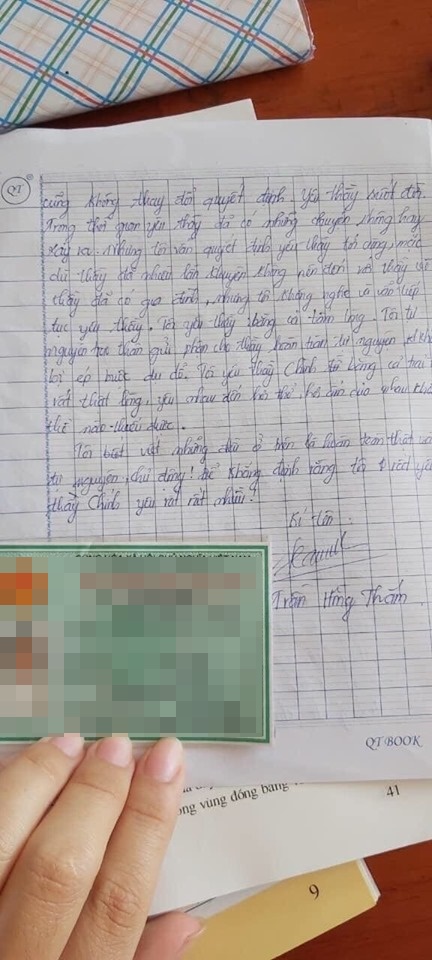 QT
cũng không thay đổi quyết định. Yêu thầy suốt đời.
Trong thời gian yêu thầy đã có những chuyện không hay
xảy ra. Nhưng tôi vẫn quyết định yêu thầy tới cùng, mặc
dù thầy đã nhiều lần khuyên không nên đến với thầy vì
thầy đã có gia đình, nhưng tôi không nghe và vẫn tiếp
tục yêu thầy. Tôi yêu thầy bằng cả tấm lòng. Tôi tự
nguyện trao thân gửi phận cho thầy hoàn toàn tự nguyện
bị ép buộc dụ dỗ. Tôi yêu thầy Chính tôi bằng cả trái
rất thật lòng, yêu nhau đến hơi thở, của nhau
thể nào thiếu được.
Tôi viết những điều ở trên là hoàn toàn thật và
tự nguyện, chủ động! Để khẳng định rằng tôi yêu
thầy Chính yêu rất rất nhiều!
Kí tên
Trần Hồng Thắm
QT BOOK
ong vùng đồng bằng
41
9